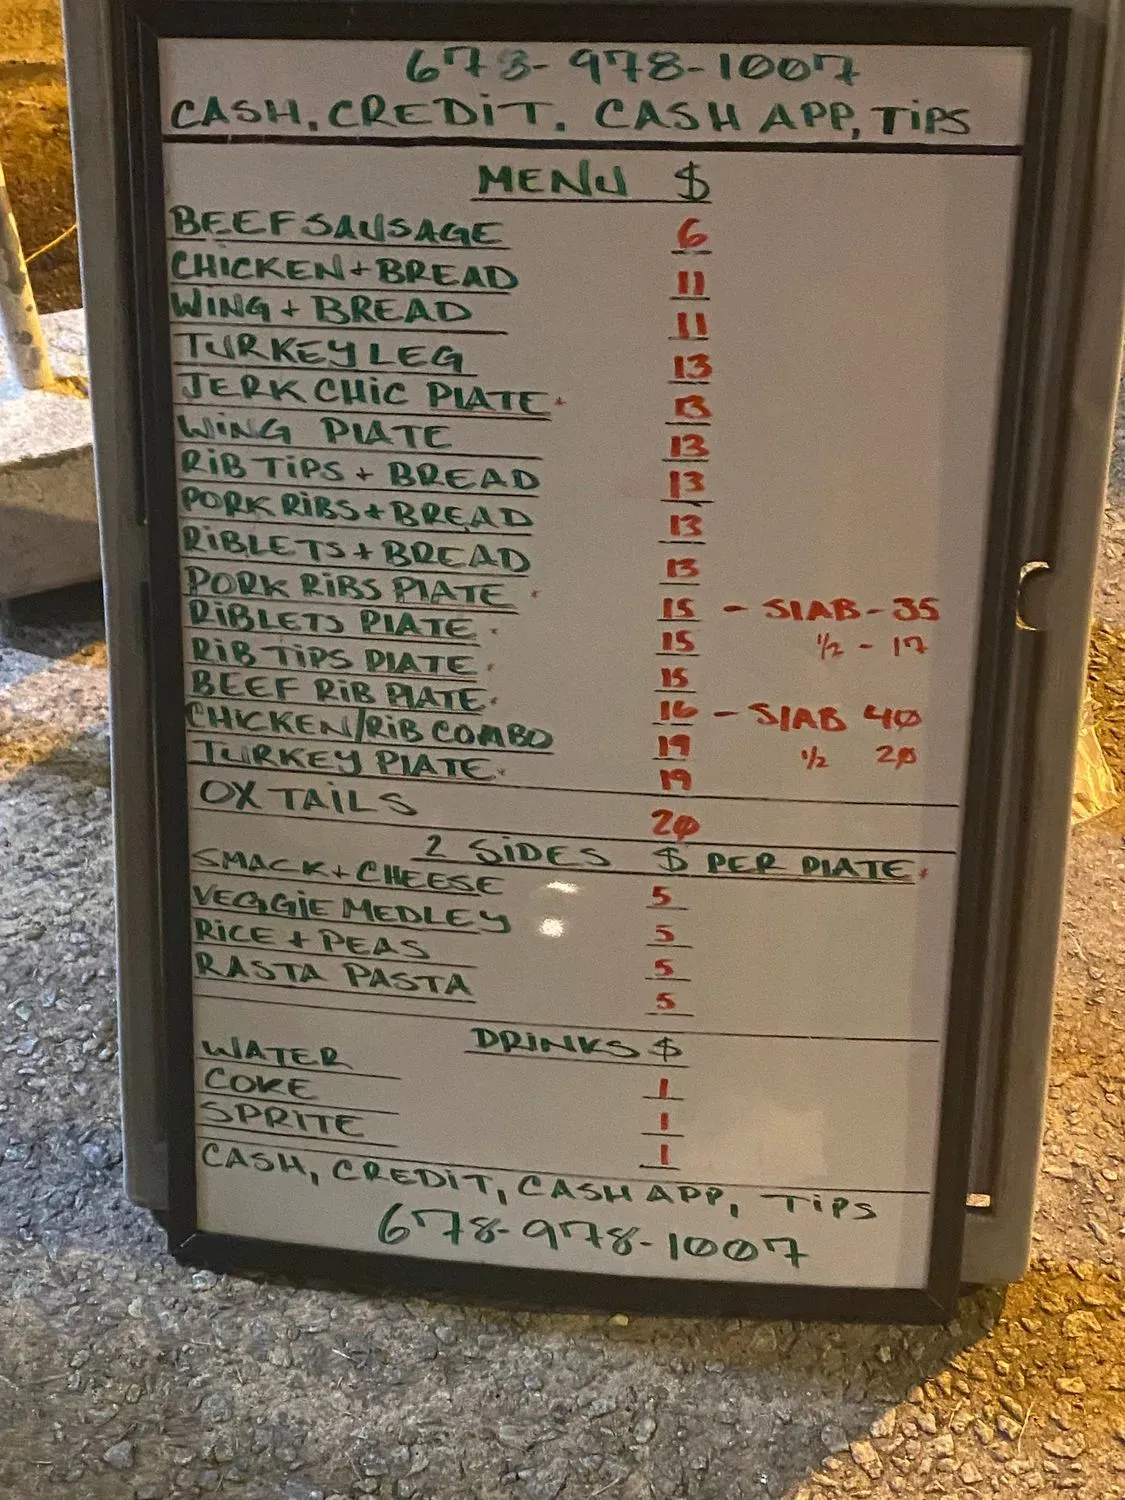 673-978-1007
CASH, CREDIT. CASH APP, TIPS
MENU $
BEEF SAUSAGE 6
CHICKEN + BREAD 11
WING + BREAD 11
TURKEY LEG 13
JERK CHIC PLATE. 13
WING PLATE 13
RIB TIPS + BREAD 13
PORK RIBS + BREAD 13
RIBLETS + BREAD 13
PORK RIBS PLATE. 15 - SLAB - 35
RIBLETS PLATE. 15 1/2 - 17
RIB TIPS PLATE. 15
BEEF RIB PLATE. 16 - SLAB 40
CHICKEN/RIB COMBO 19 1/2 20
TURKEY PLATE. 19
OX TAILS 20
2 SIDES $ PER PLATE.
SMACK + CHEESE 5
VEGGIE MEDLEY 5
RICE + PEAS 5
RASTA PASTA 5
DRINKS $
WATER 1
COKE 1
SPRITE 1
CASH, CREDIT, CASH APP, TIPS
678-978-1007